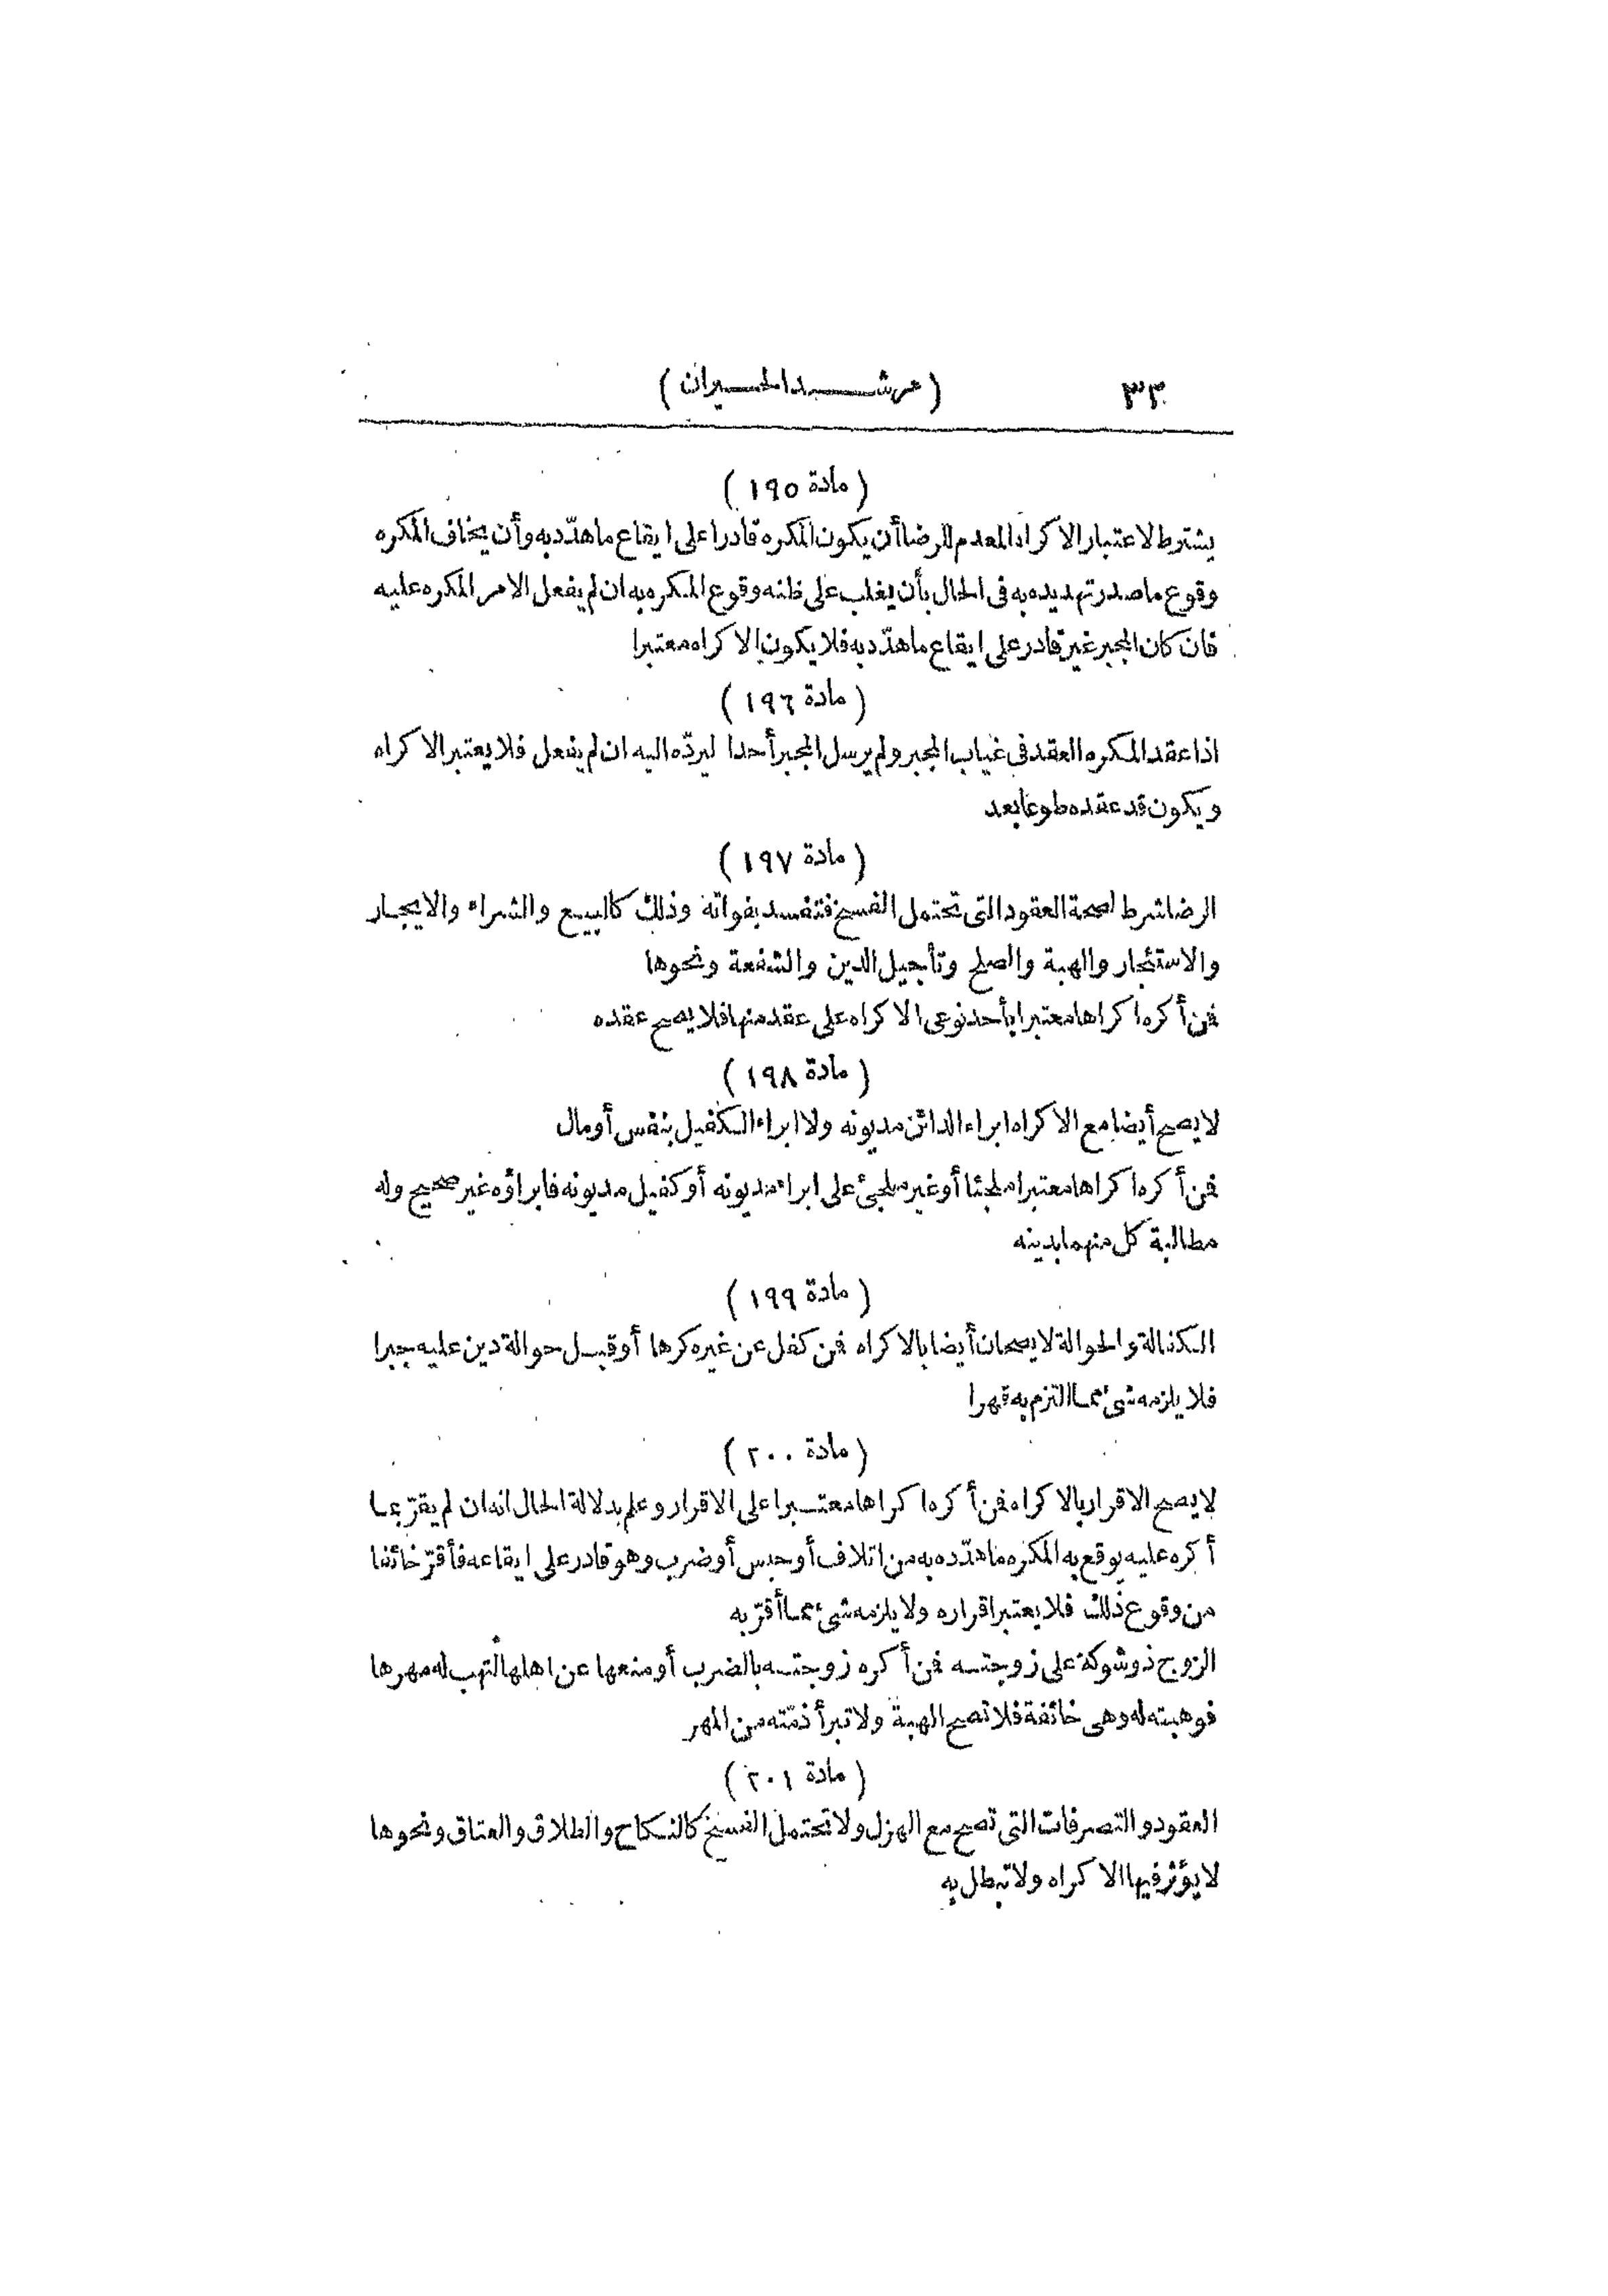 ٣٣ (مرشد الحيران)
(مادة ١٩٥)
يشترط لاعتبار الاكراه المعدم للرضا أن يكون المكره قادرا على ايقاع ما هدّد به وأن يخاف المكره
وقوع ما صدر تهديده به فى الحال بأن يغلب على ظنه وقوع المكره به ان لم يفعل الامر المكره عليه
فان كان المجبر غير قادر على ايقاع ما هدّد به فلا يكون الاكراه معتبرا
(مادة ١٩٦)
اذا عقد المكره العقد فى غياب المجبر ولم يرسل المجبر أحدا ليردّه اليه ان لم يفعل فلا يعتبر الاكراه
ويكون قد عقده طوعا بعد
(مادة ١٩٧)
الرضا شرط لصحة العقود التى تحتمل الفسخ فتفسد بفواته وذلك كالبيع والشراء والايجار
والاستئجار والهبة والصلح وتأجيل الدين والشفعة ونحوها
فمن أكره اكراها معتبرا بأحد نوعى الاكراه على عقد منها فلا يصح عقده
(مادة ١٩٨)
لا يصح أيضا مع الاكراه ابراء الدائن مديونه ولا ابراء الكفيل بنفس أو مال
فمن أكره اكراها معتبرا ملجئا أو غير ملجئ على ابراء مديونه أو كفيل مديونه فابراؤه غير صحيح وله
مطالبة كل منهما بدينه
(مادة ١٩٩)
الكفالة والحوالة لا يصحان أيضا بالاكراه فمن كفل عن غيره كرها أو قبل حوالة دين عليه جبرا
فلا يلزمه شئ مما التزم به قهرا
(مادة ٢٠٠)
لا يصح الاقرار بالاكراه فمن أكره اكراها معتبرا على الاقرار وعلم بدلالة الحال انه ان لم يقرّ بما
أكره عليه يوقع به المكره ما هدّده به من اتلاف أو حبس أو ضرب وهو قادر على ايقاعه فأقرّ خائفا
من وقوع ذلك فلا يعتبر اقراره ولا يلزمه شئ مما أقرّ به
الزوج ذو شوكة على زوجته فمن أكره زوجته بالضرب أو منعها عن اهلها لتهب له مهرها
فوهبته له وهى خائفة فلا تصح الهبة ولا تبرأ ذمّته من المهر
(مادة ٢٠١)
العقود والتصرفات التى تصح مع الهزل ولا تحتمل الفسخ كالنكاح والطلاق والعتاق ونحوها
لا يؤثر فيها الاكراه ولا تبطل به